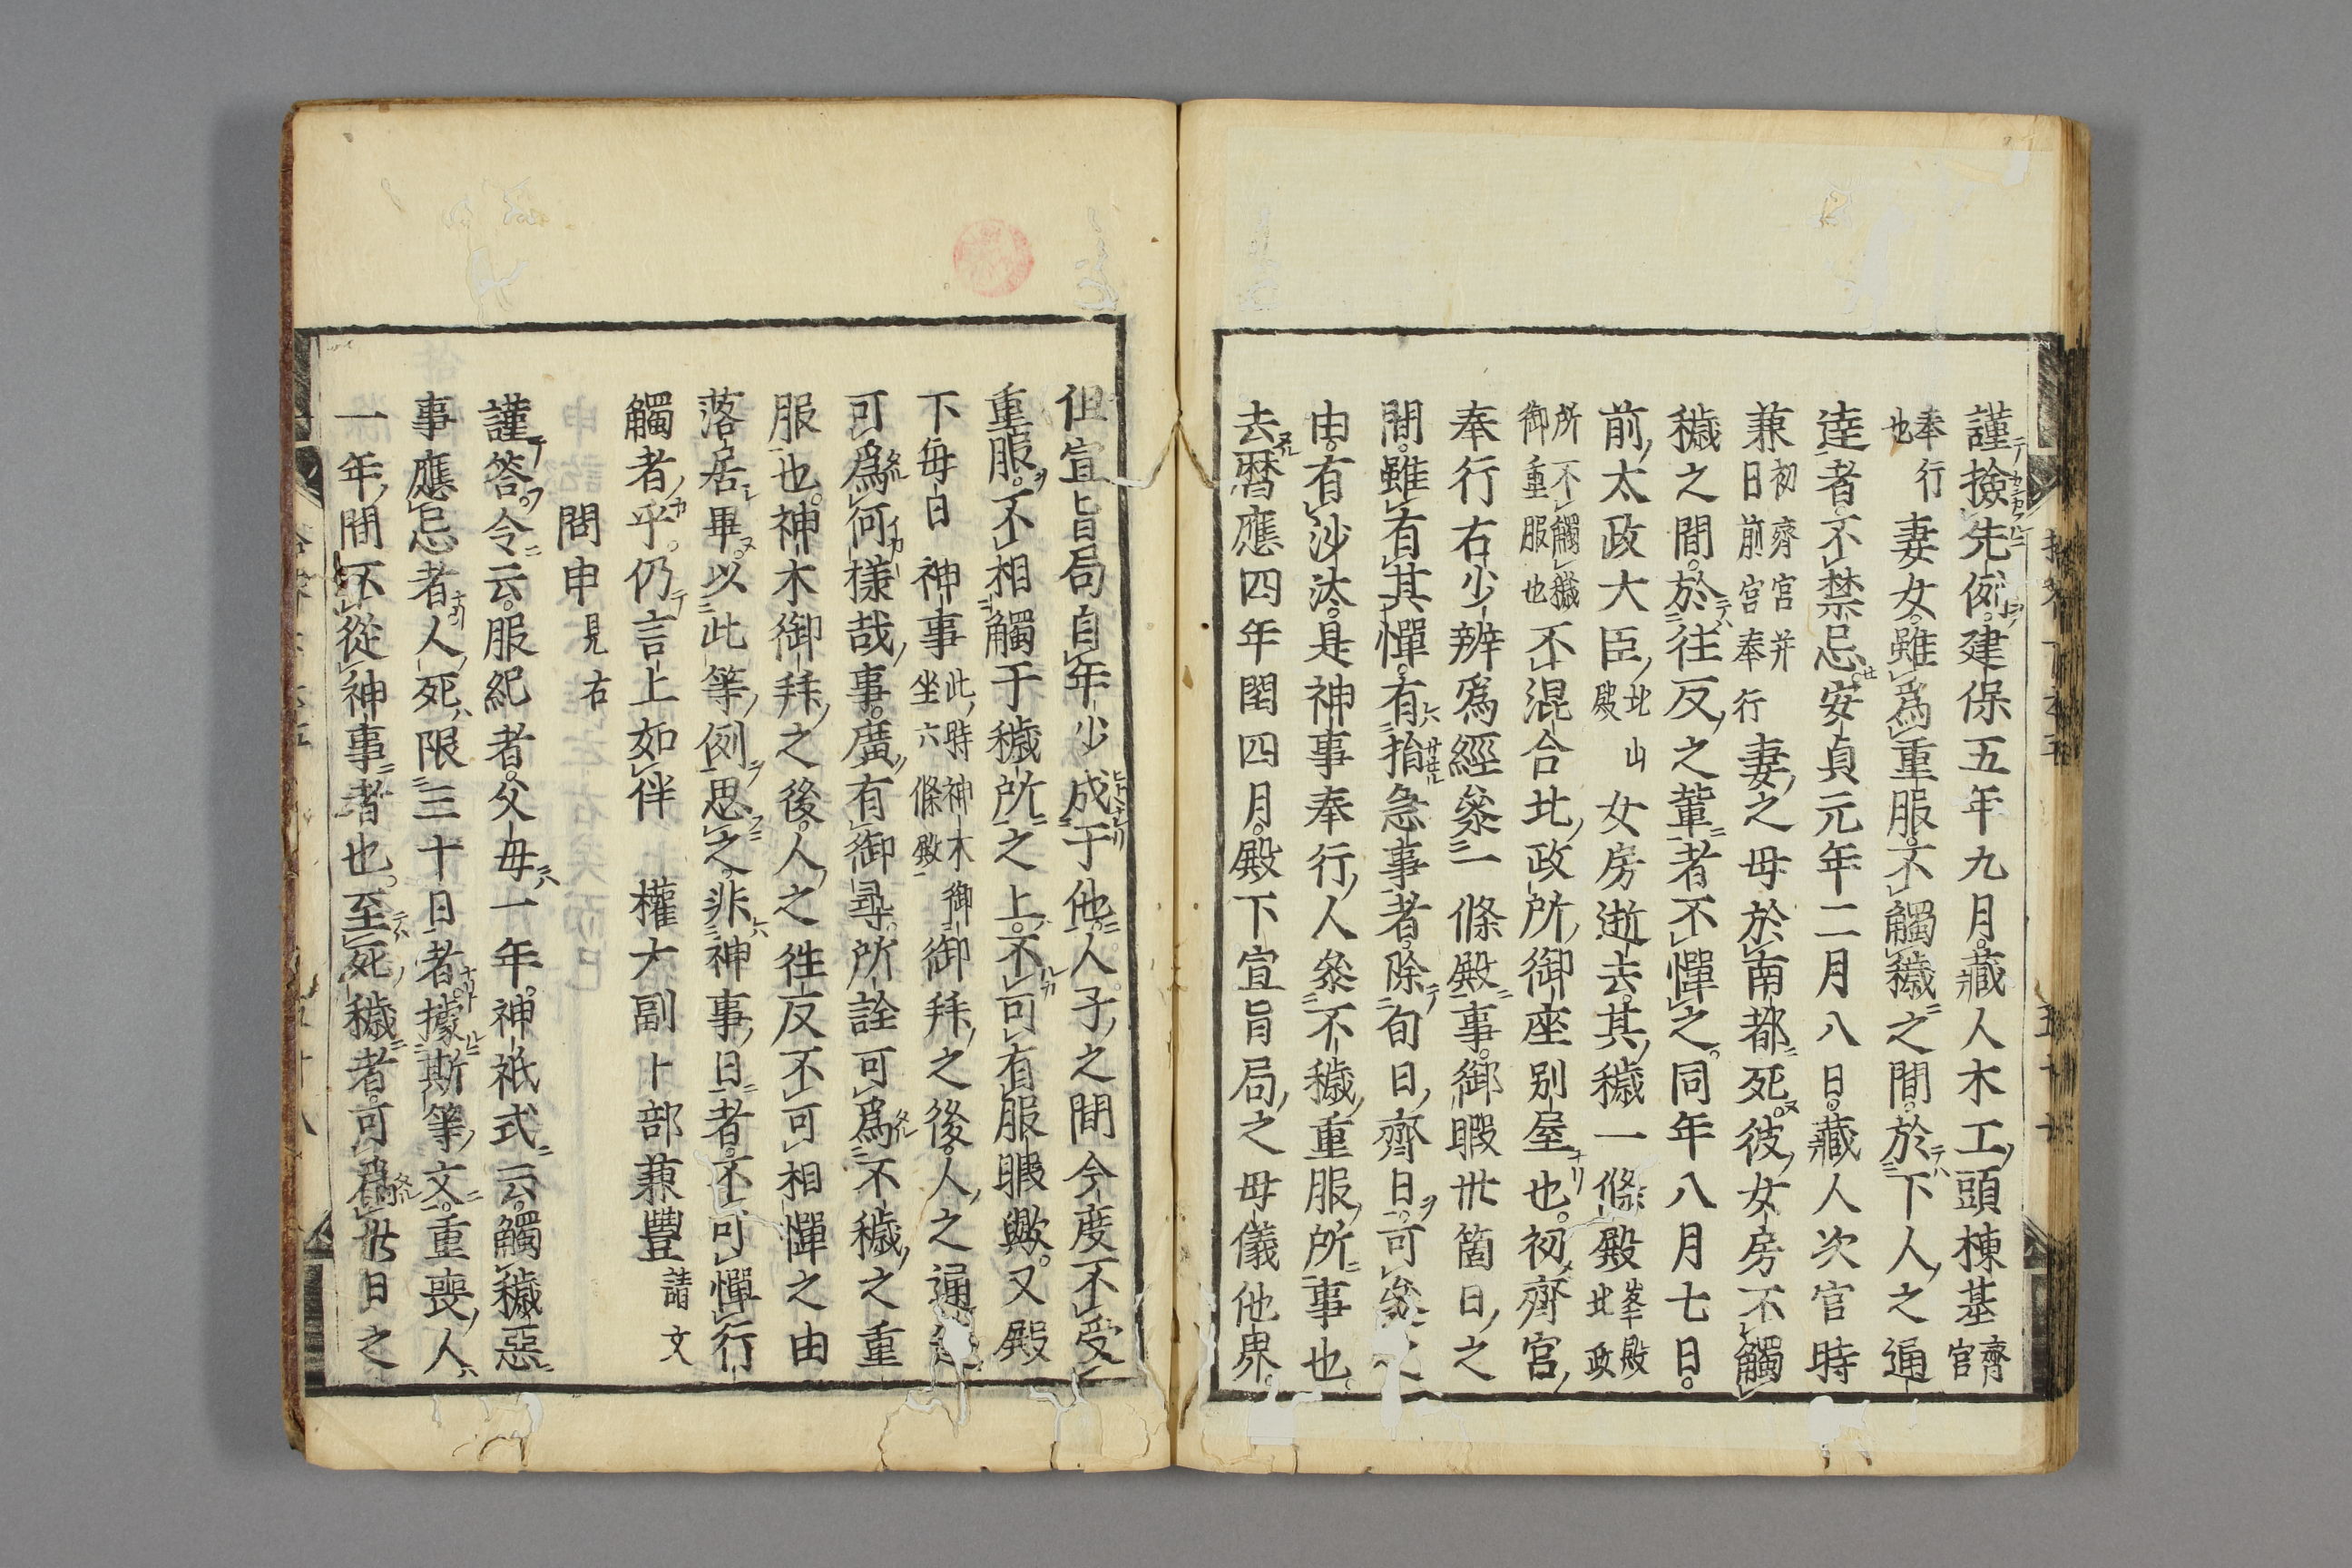 謹撿先例。建保五年九月。藏人木工頭棟基齊官
奉行也妻女。雖爲重服。不觸穢之間。於下人之通
達者。不禁忌。安貞元年二月八日。藏人次官時
兼初齊宮并日前宮奉行妻之母於南都死。彼女房不觸
穢之間。於往反之輩者不憚之。同年八月七日。
前太政大臣北山殿女房逝去。其穢一條殿峯殿北政
所不觸穢御重服也不混合北政所御座別屋也。初齊宮
奉行右少辨爲經參一條殿事。御暇卅箇日之
間。雖有其憚。有指急事者。除旬日齊日。可參之
由。有沙汰。是神事奉行人參不穢重服所事也。
去曆應四年閏四月。殿下宣旨局之母儀他界。
但宣旨局自年少成于他人子之間今度不受
重服。不相觸于穢所之上。不可有服暇歟。又殿
下毎日神事此時神木御坐六條殿御拜之後。人之通達
可爲何樣哉事。廣有御尋。所詮可爲不穢之重
服也。神木御拜之後。人之徃反不可相憚之由
落居畢。以此等例思之。非神事日者。不可憚行
觸者乎。仍言上如件 權大副卜部兼豐請文
問申見右
謹答。令云。服紀者。父母一年。神祇式云。觸穢惡
事應忌者。人死限三十日者。據斯等文。重喪人
一年間不從神事者也。至死穢者。可爲卅日之